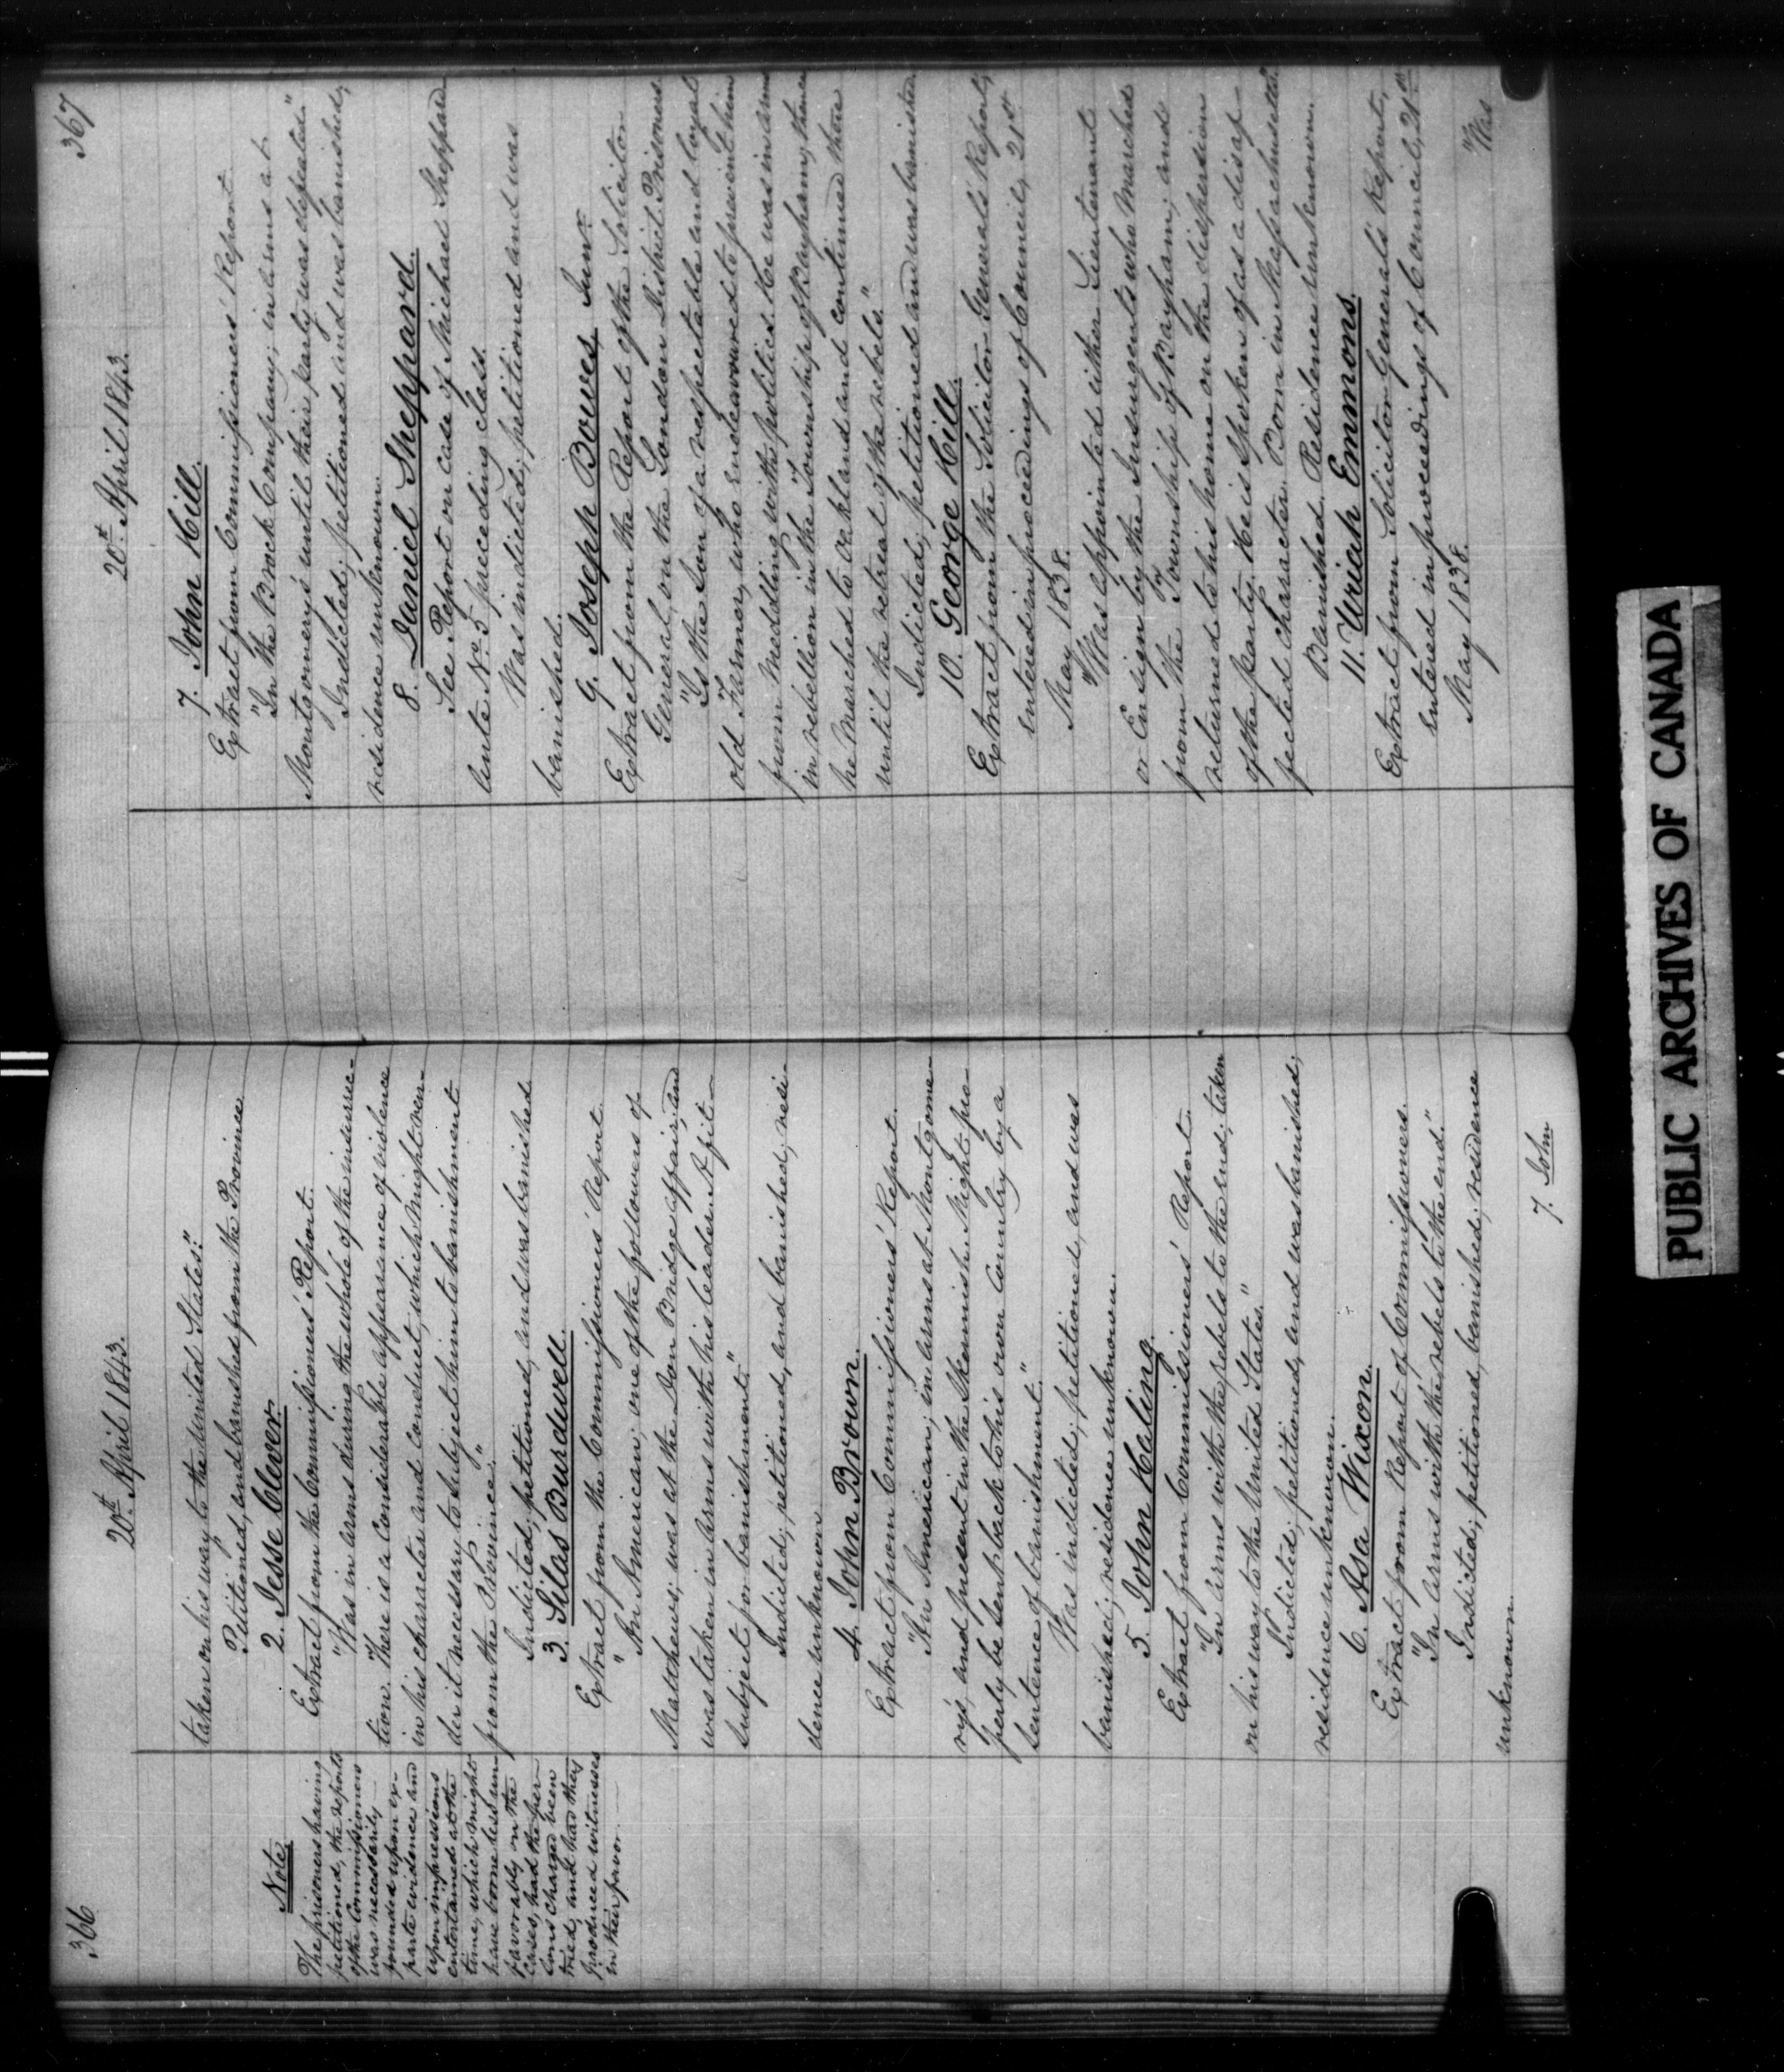 366
20th April 1843.
Note
The prisoners having
petitioned, the reports
of the Commissioners
was necessarily
founded upon ex-
parte evidence and
upon impressions
entertained at the
time, which might
have borne less un-
favorably on the
cases, had the per-
sons charged been
tried, and had they
produced witnesses
in their favor.
taken on his way to the United States."
Petitioned, and banished from the Province
2. Jesse Clever.
Extract from the Commissioners' Report.
"Was in arms during the whole of the insurrec-
tion. There is a considerable appearance of violence
in his character and conduct, which might ren-
der it necessary to subject him to banishment
from the Province."
Indicted, petitioned, and was banished
3. Silas Burdwell.
Extract from the Commissioners' Report.
"An American; one of the followers of
Matthews; was at the Don Bridge affair, and
was taken in arms with his leader. A fit
subject for banishment."
Indicted; petitioned, and banished; resi-
dence unknown
4. John Brown.
Extract from Commissioners' Report.
"An American; in arms at Montgome-
ry's, and present in the Skirmish. Might pro-
perly be sent back to his own Country by a
sentence of banishment."
Was indicted; petitioned, and was
banished; residence unknown.
5. John Haling.
Extract from Commissioners' Report.
"In arms with the rebels to the end; taken
on his way to the United States."
Indicted; petitioned, and was banished;
residence unknown.
6. Asa Wixon.
Extract from Report of Commissioners.
"In arms with the rebels to the end."
Indicted; petitioned, banished; residence
unknown.
7. John
367
20th April 1843.
7. John Hill.
Extract from Commissioners' Report
"In the Brock Company; in arms at
Montgomery's until their party was defeated."
Indicted; petitioned and was banished;
residence unknown.
8. Daniel Sheppard.
See Report on case of Michael Sheppard
ante No. 5 preceding class.
Was indicted; petitioned and was
banished.
9. Joseph Bowes, Junr.
Extract from the Report of the Solicitor
General, on the London District Prisoners
"Is the Son of a respectable and loyal
old Farmer, who endeavoured to prevent him
from meddling with politics. He was in arms
in rebellion in the Township of Bayham, thence
he marched to oakland and continued there
until the retreat of the rebels."
Indicted; petitioned and was banished
10. George Hill.
Extract from the Solicitor General's Report,
entered in proceedings of Council, 21st
May 1838.
"Was appointed either Lieutenant
or Ensign by the Insurgents who marched
from the Township of Bayham; and
returned to his home on the dispersion
of the party. He is spoken of as a disaf-
fected character. Born in Massachusetts."
Banished. Residence unknown.
11. Uriah Emmons.
Extract from Solicitor General's Report,
entered in proceedings of Council, 21st
May 1838.
"Was
PUBLIC ARCHIVES OF CANADA